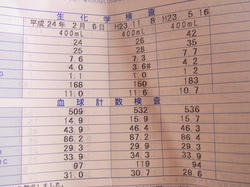 生 化 学 検 査
平成 24年 2月 6日 H23 11 8 H23 5.16
400mL 400mL 400mL
24 25 42
26 28 35
7.6 7.3 7.7
4.0 3.6# 4.2
168 150 183
11.6 10.7
血 球 計 数 検 査
509 532 536
14.9 15.9 15.7
43.9 46.4 46.3
86.2 87.2 86.4
29.3 29.9 29.3
33.9 34.3 33.9
97 119 94
31.0 30.7 28.6